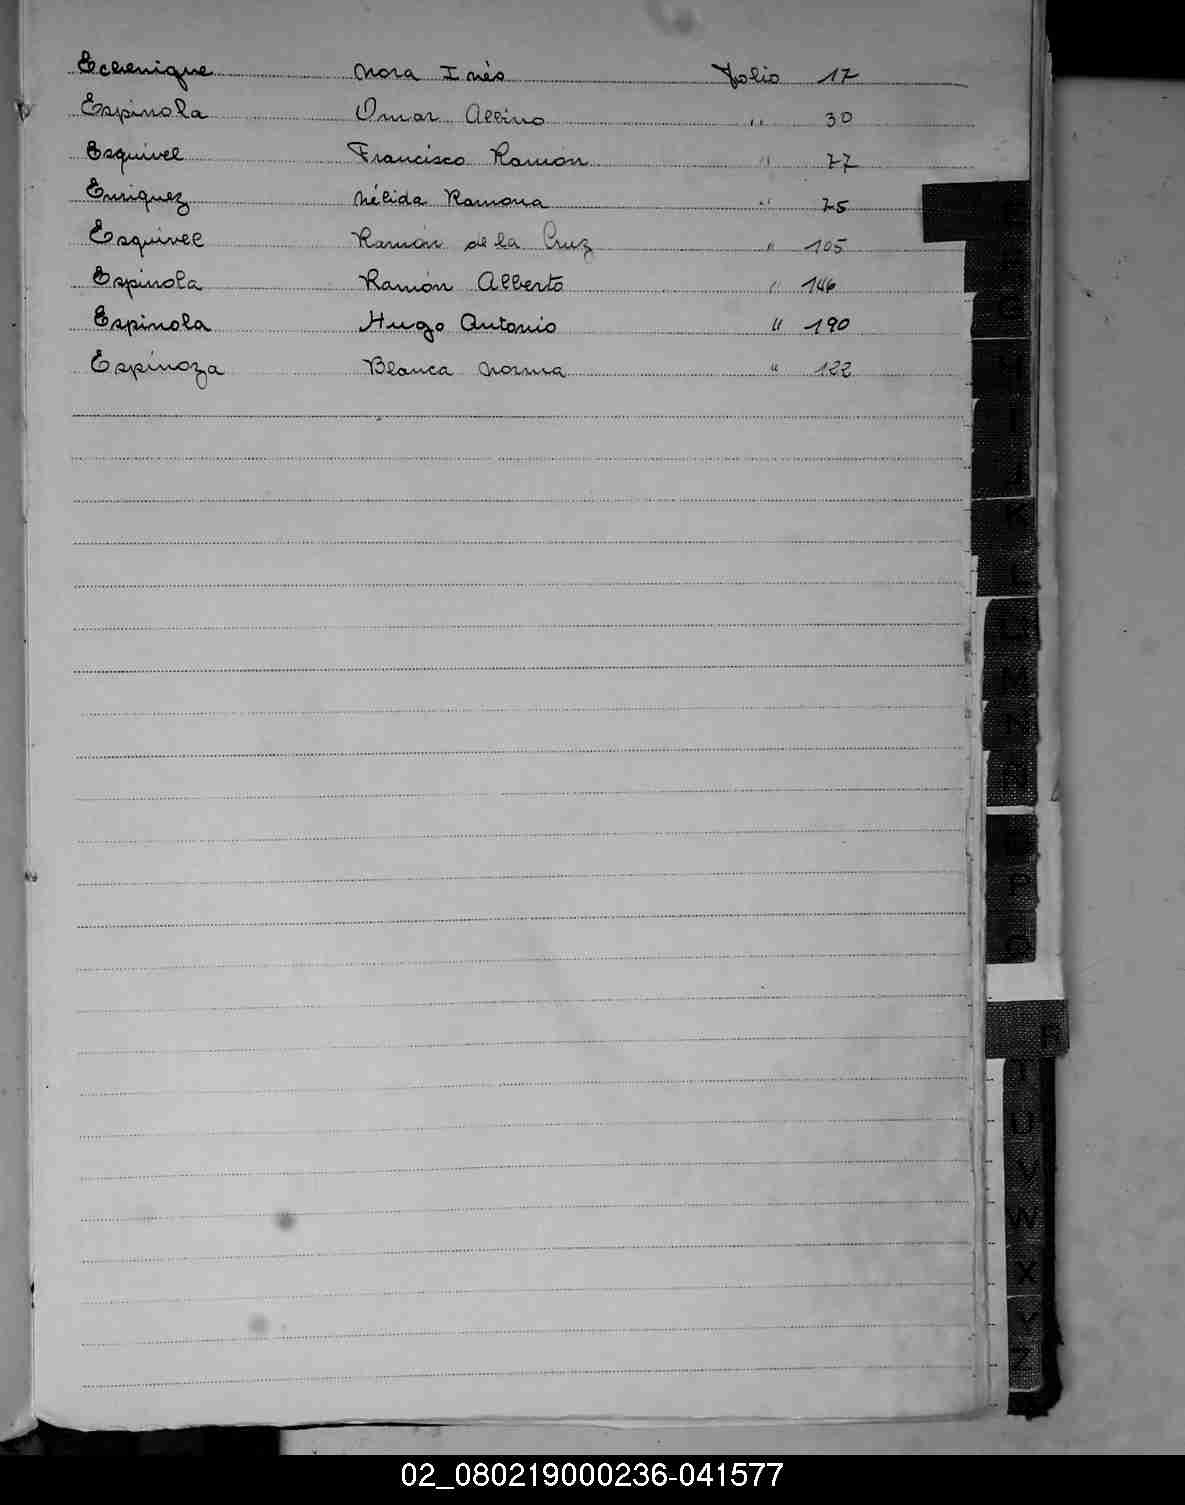 Echenique Nora Inés Folio 17
Espinola Omar Albino " 30
Esquivel Francisco Ramón " 77
Enriquez Nélida Ramona " 75
Esquivel Ramón de la Cruz " 105
Espinola Ramón Alberto " 146
Espinola Hugo Antonio " 190
Espinoza Blanca Norma " 122
E
G
H
I
J
K
L
M
N
P
Q
R
U
V
W
X
Y
Z
02_080219000236-041577